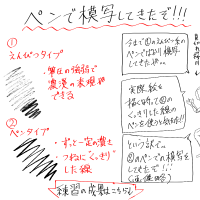 ペンで模写してきたぞ!!!
①
えんぴつタイプ
・筆圧の強弱で
濃淡の表現が
できる
②
ペンタイプ
・ずっと一定の濃さ
つねに"くっきり"
した線
今まで①のえんぴつ系の
ペンでばかり模写
してきたが…
実際、絵を
描く時って②の
くっきりした線の
ペンを使うな
という訳で、
②のペンでの模写を
してきたぞ!!
練習の成果はこちら